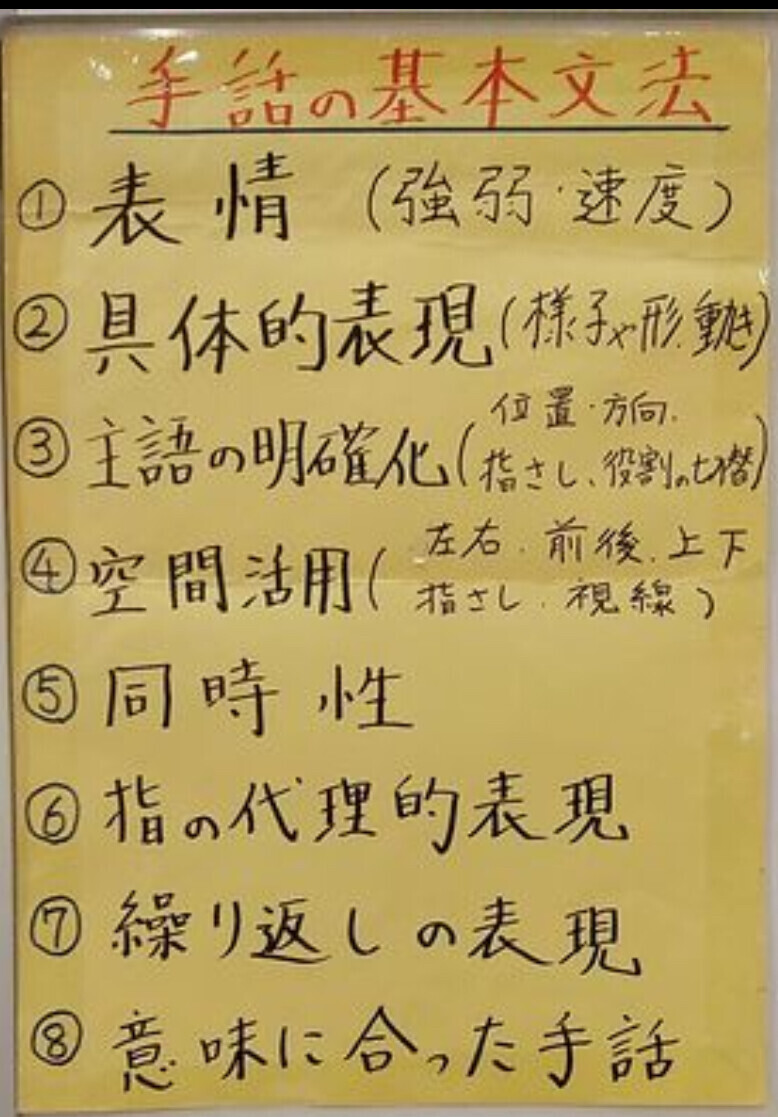 手話の基本文法
① 表情 (強弱・速度)
② 具体的表現 (様子や形、動き)
③ 主語の明確化 (位置・方向、
指さし、役割の切替)
④ 空間活用 (左右、前後、上下
指さし、視線)
⑤ 同時性
⑥ 指の代理的表現
⑦ 繰り返しの表現
⑧ 意味に合った手話